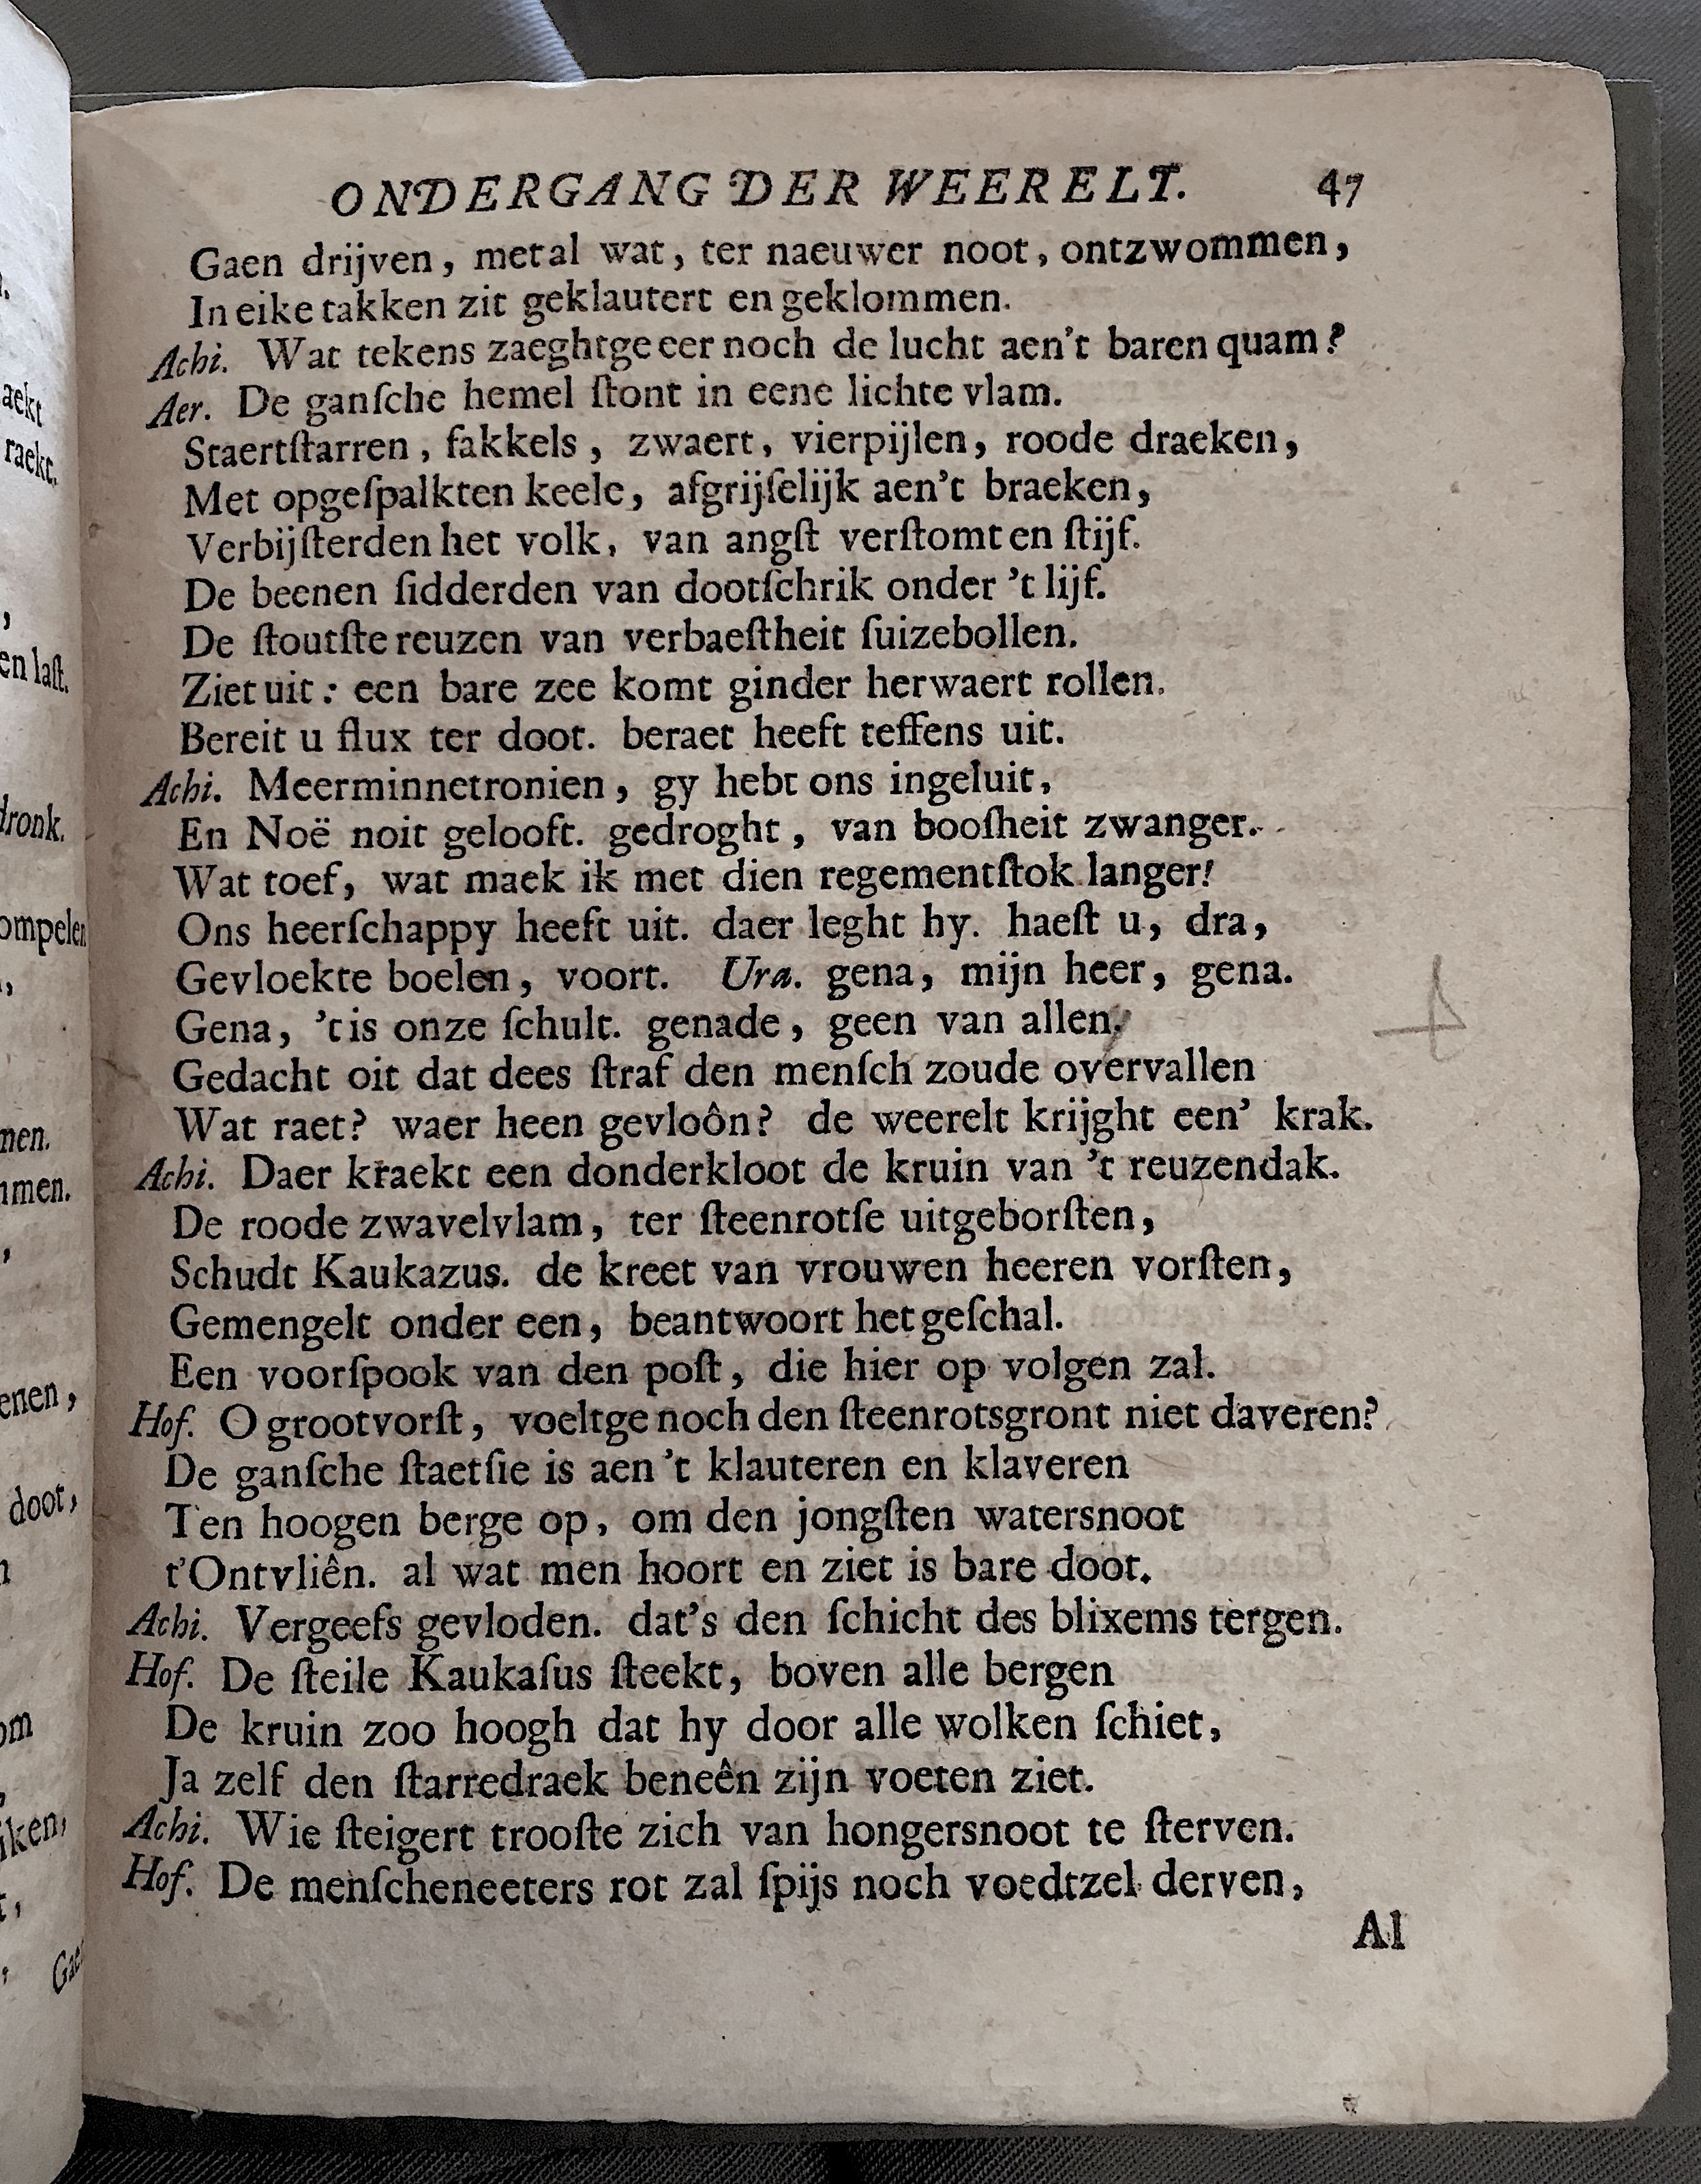 ONDERGANG DER WEERELT. 47
Gaen drijven, met al wat, ter naeuwer noot, ontzwommen,
In eike takken zit geklautert en geklommen.
Achi. Wat tekens zaeghtge eer noch de lucht aen't baren quam?
Aer. De ganſche hemel ſtont in eene lichte vlam.
Staertſtarren, fakkels, zwaert, vierpijlen, roode draeken,
Met opgeſpalkten keele, afgrijſelijk aen't braeken,
Verbijſterden het volk, van angſt verſtomt en ſtijf.
De beenen ſidderden van dootſchrik onder 't lijf.
De ſtoutſte reuzen van verbaeſtheit ſuizebollen.
Ziet uit: een bare zee komt ginder herwaert rollen.
Bereit u flux ter doot. beraet heeft teffens uit.
Achi. Meerminnetronien, gy hebt ons ingeluit,
En Noë noit gelooft. gedroght, van booſheit zwanger.
Wat toef, wat maek ik met dien regementſtok langer!
Ons heerſchappy heeft uit. daer leght hy. haeſt u, dra,
Gevloekte boelen, voort. Ura. gena, mijn heer, gena.
Gena, 't is onze ſchult. genade, geen van allen,
Gedacht oit dat dees ſtraf den menſch zoude overvallen
Wat raet? waer heen gevloôn? de weerelt krijght een' krak.
Achi. Daer kraekt een donderkloot de kruin van 't reuzendak.
De roode zwavelvlam, ter ſteenrotſe uitgeborſten,
Schudt Kaukazus. de kreet van vrouwen heeren vorſten,
Gemengelt onder een, beantwoort het geſchal.
Een voorſpook van den poſt, die hier op volgen zal.
Hof. O grootvorſt, voeltge noch den ſteenrotsgront niet daveren?
De ganſche ſtaetſie is aen 't klauteren en klaveren
Ten hoogen berge op, om den jongſten watersnoot
t'Ontvliên. al wat men hoort en ziet is bare doot.
Achi. Vergeefs gevloden. dat's den ſchicht des blixems tergen.
Hof. De ſteile Kaukaſus ſteekt, boven alle bergen
De kruin zoo hoogh dat hy door alle wolken ſchiet,
Ja zelf den ſtarredraek beneên zijn voeten ziet.
Achi. Wie ſteigert trooſte zich van hongersnoot te ſterven.
Hof. De menſcheneeters rot zal ſpijs noch voedtzel derven,
Al